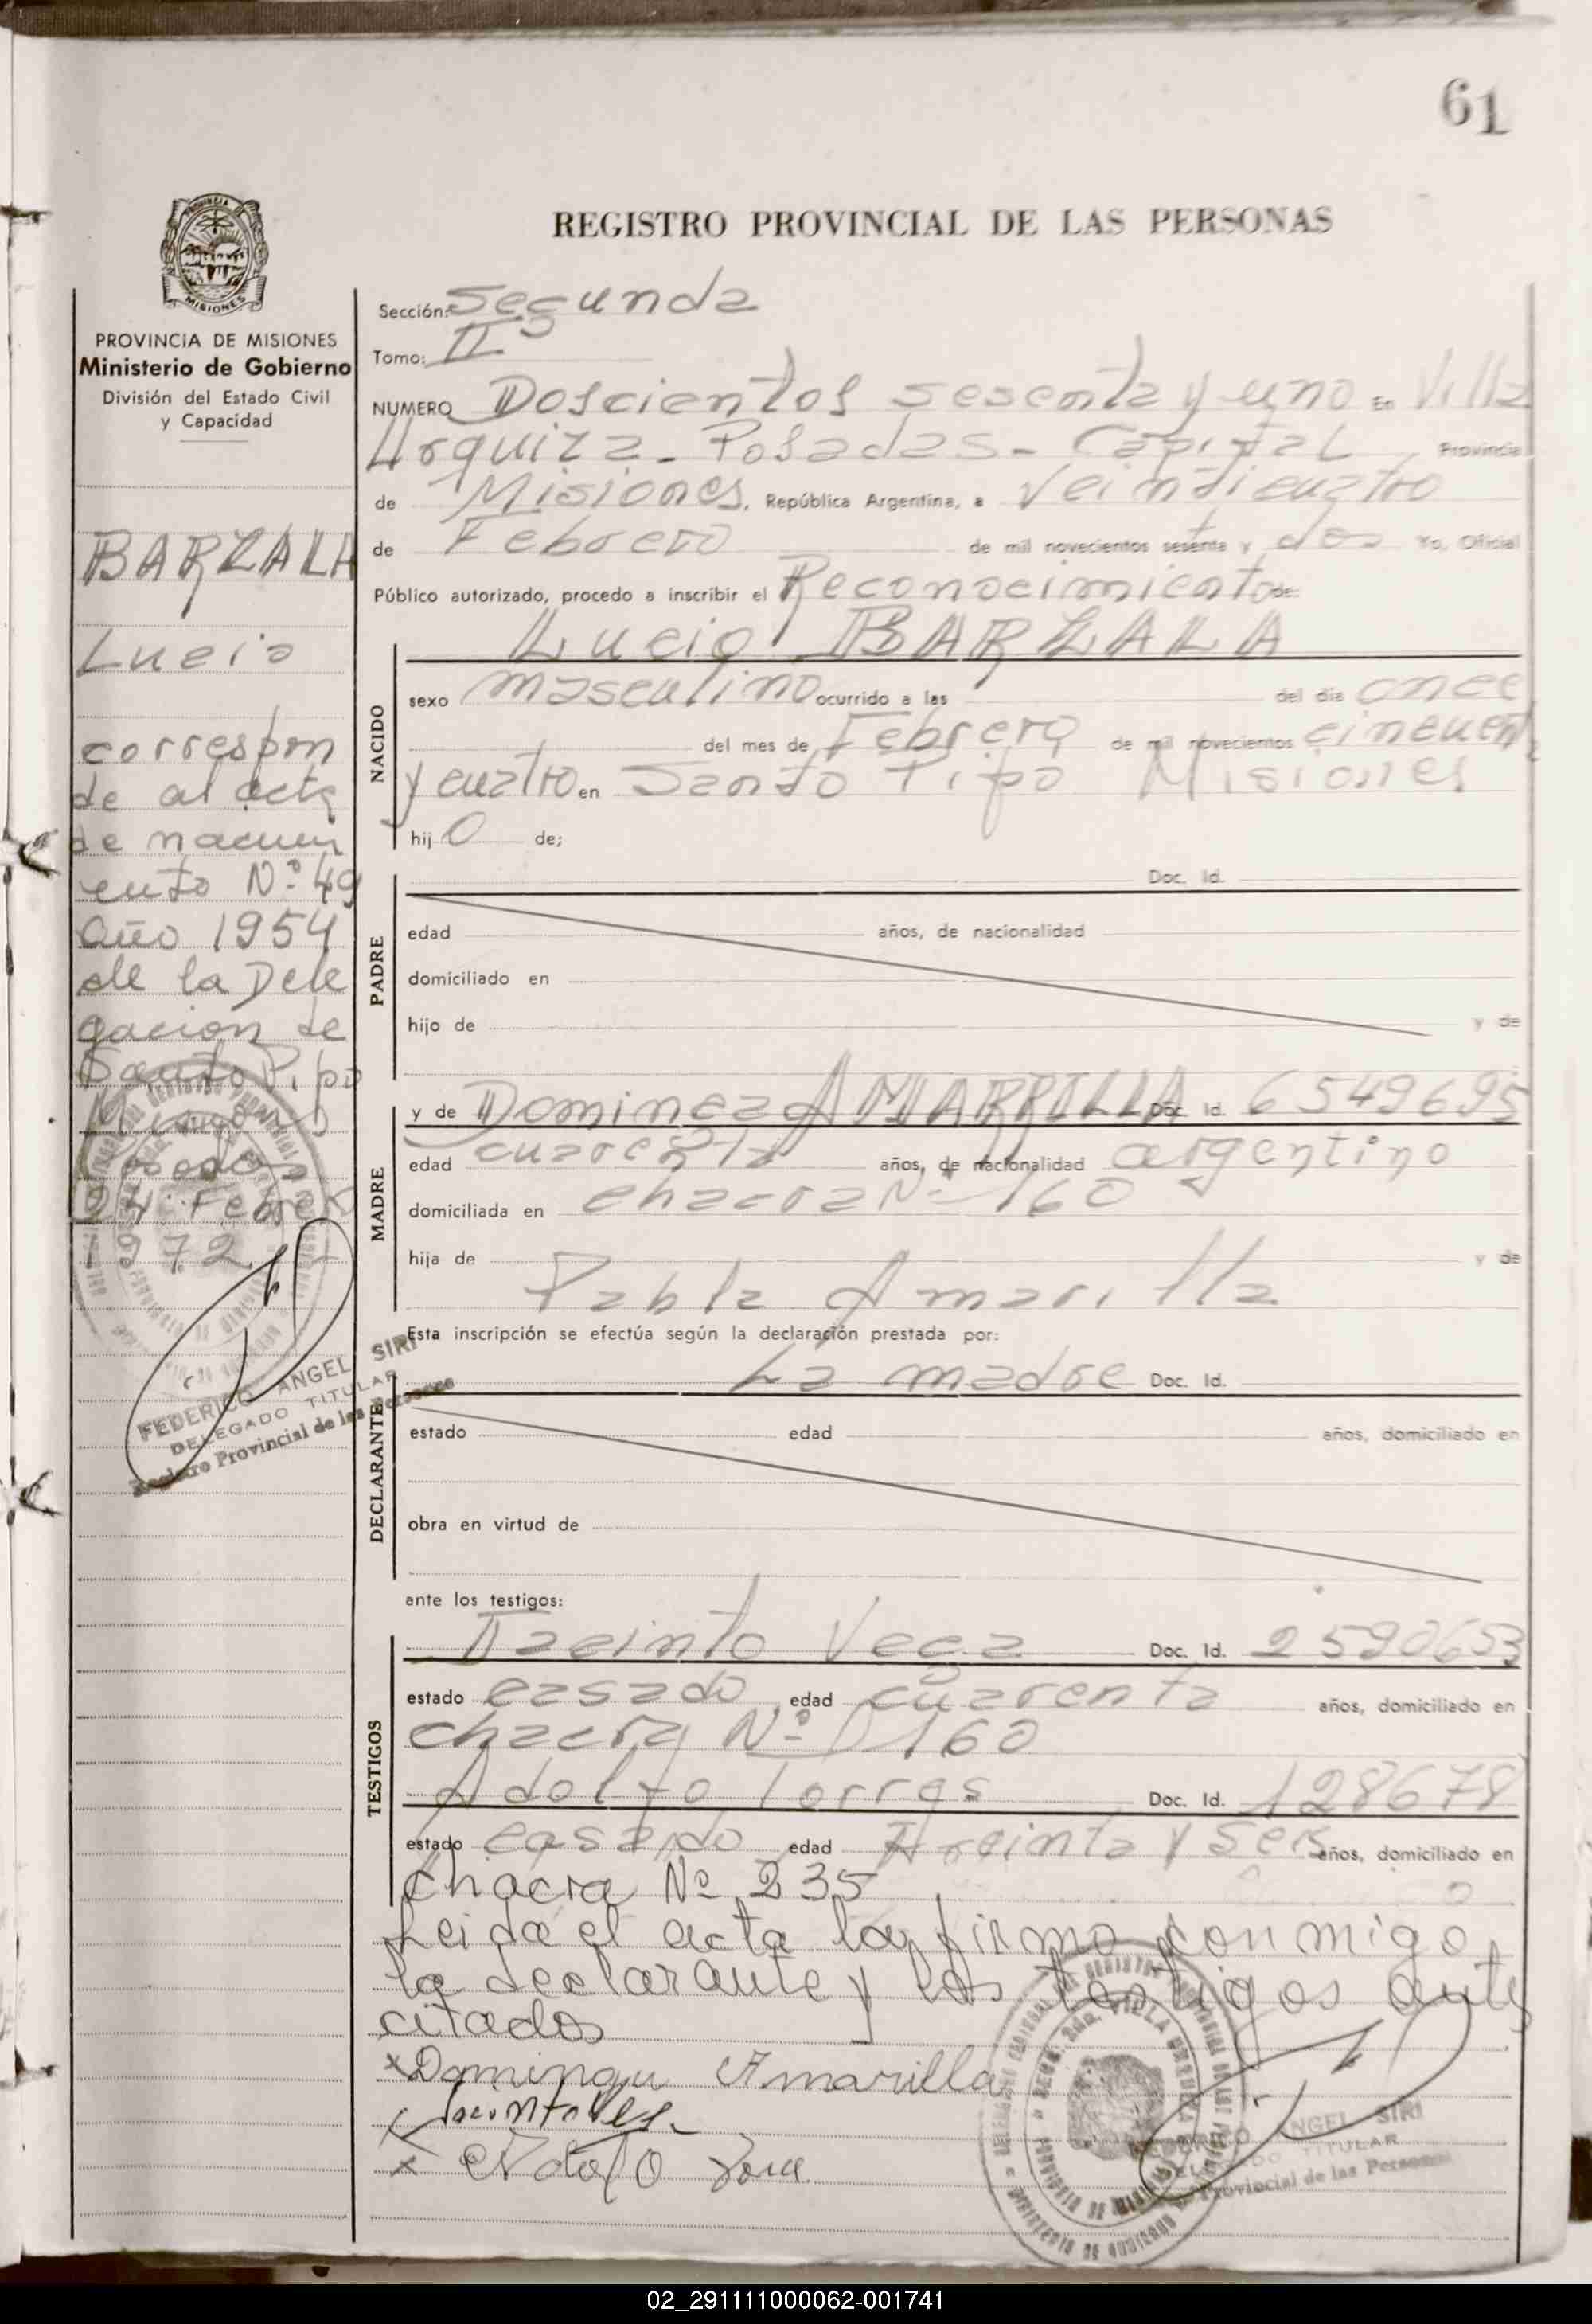 61
REGISTRO PROVINCIAL DE LAS PERSONAS
PROVINCIA DE MISIONES
Ministerio de Gobierno
División del Estado Civil
y Capacidad
BARZALA
Lucio
correspon
de al acta
de nacimi
ento Nº 49
año 1954
de la Dele
gacion de
Santo Pipo
Posadas
24 Febrero
1972
FEDERICO ANGEL SIRI
DELEGADO TITULAR
Registro Provincial de las Personas
Sección: Segunda
Tomo: II
NUMERO Doscientos sesenta y uno En Villa
Urquiza - Posadas - Capital Provincia
de Misiones, República Argentina, a Veinticuatro
de Febrero de mil novecientos sesenta y dos Yo, Oficial
Público autorizado, procedo a inscribir el Reconocimiento de:
Lucio BARZALA
NACIDO
sexo masculino ocurrido a las del día once
del mes de Febrero de mil novecientos cincuent
y cuatro en Santo Pipo Misiones
hijo de;
PADRE
Doc. Id.
edad años, de nacionalidad
domiciliado en
hijo de y de
MADRE
y de Dominga AMARRILLA Doc. Id. 6549695
edad cuarenta años, de nacionalidad argentino
domiciliada en chacra Nº 160
hija de y de
Pabla Amarilla
Esta inscripción se efectúa según la declaración prestada por:
DECLARANTE
La madre Doc. Id.
estado edad años, domiciliado en
obra en virtud de
ante los testigos:
TESTIGOS
Jacinto Vega Doc. Id. 2590653
estado casado edad cuarenta años, domiciliado en
chacra Nº 160
Adolfo Torres Doc. Id. 128678
estado casado edad treinta y seis años, domiciliado en
Chacra Nº 235
Leida el acta la firma conmigo
la declarante y los testigos ante
citados
x Domingu Amarilla
x Adolfo
ANGEL SIRI
TITULAR
Provincial de las Personas
02_291111000062-001741